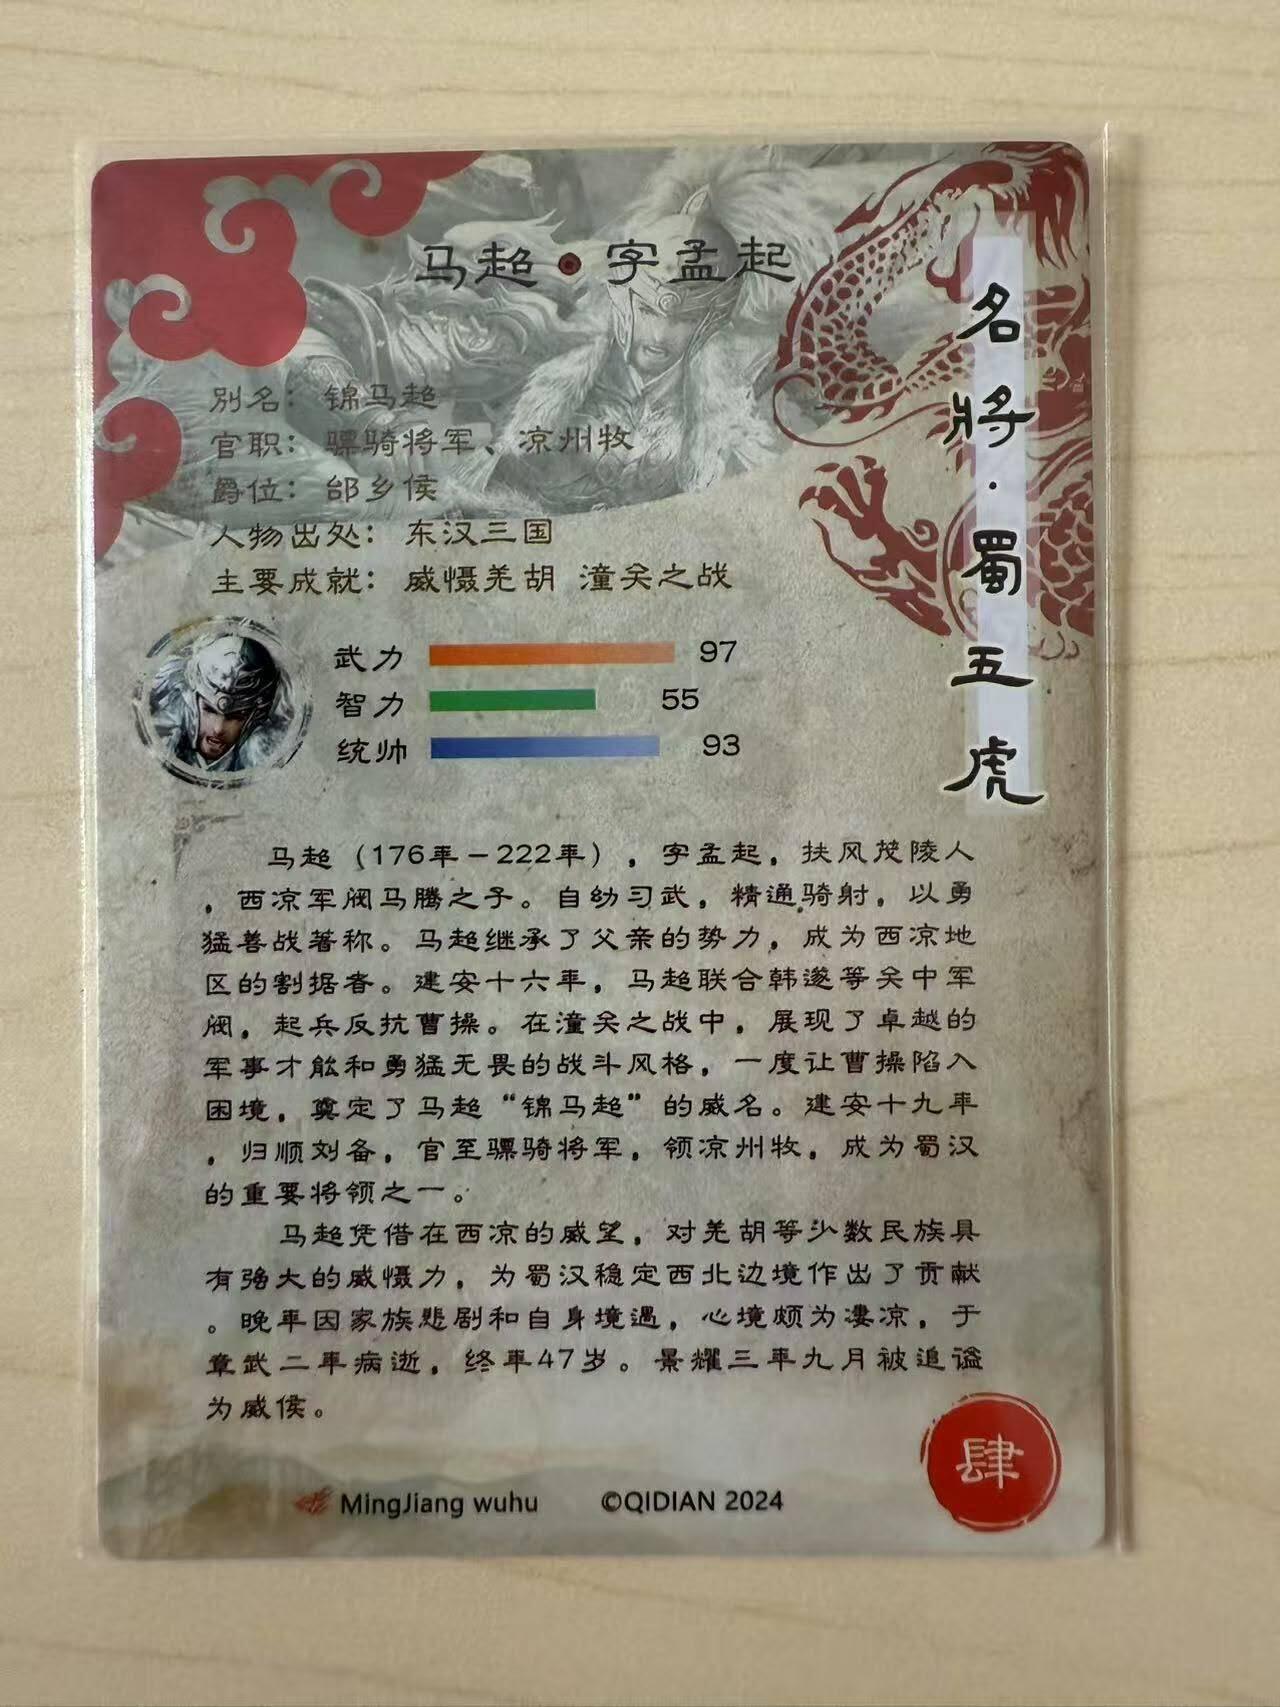 马超·字孟起
名
將
·
蜀
五
虎
别名：锦马超
官职：骠骑将军、凉州牧
爵位：邰乡侯
人物出处：东汉三国
主要成就：威慑羌胡 潼关之战
武力 97
智力 55
统帅 93
马超（176年－222年），字孟起，扶风茂陵人
，西凉军阀马腾之子。自幼习武，精通骑射，以勇
猛善战著称。马超继承了父亲的势力，成为西凉地
区的割据者。建安十六年，马超联合韩遂等关中军
阀，起兵反抗曹操。在潼关之战中，展现了卓越的
军事才能和勇猛无畏的战斗风格，一度让曹操陷入
困境，奠定了马超“锦马超”的威名。建安十九年
，归顺刘备，官至骠骑将军，领凉州牧，成为蜀汉
的重要将领之一。
马超凭借在西凉的威望，对羌胡等少数民族具
有强大的威慑力，为蜀汉稳定西北边境作出了贡献
。晚年因家族悲剧和自身境遇，心境颇为凄凉，于
章武二年病逝，终年47岁。景耀三年九月被追谥
为威侯。
肆
MingJiang wuhu ©QIDIAN 2024